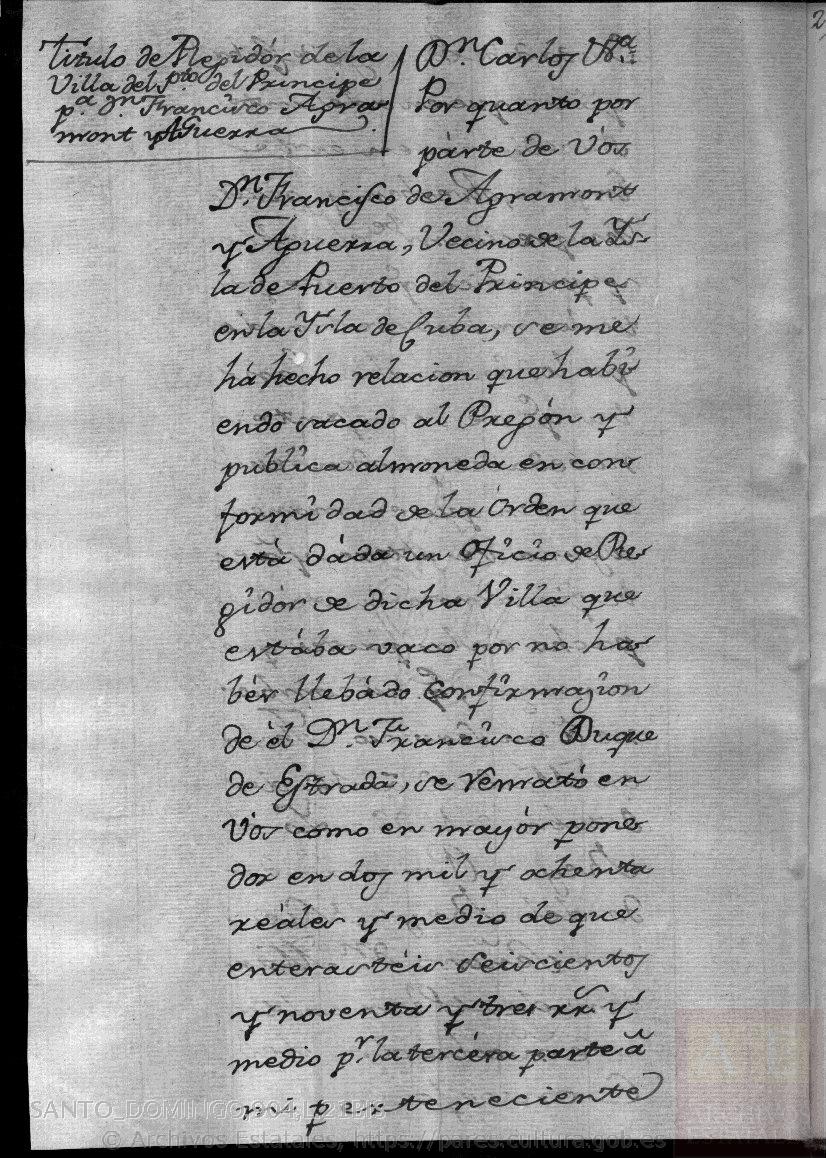 2
Titulo de Regidór de la
Villa del Pto. del Principe
pa. dn. Francisco Agra-
mont y Aguerra
Dn. Carlos &a.
Por quanto por
párte de Vós
Dn. Francisco de Agramont
y Aguerra, Vecino de la Ys-
la de Puerto del Principe
en la Ysla de Cuba, se me
há hecho relacion que habi
endo sacado al Pregón y
publica almoneda en con
formidad de la Órden que
está dáda un Oficio de Re-
gidór de dicha Villa que
estába vaco por no ha-
bér llebádo Confirmazion
de él Dn. Francisco Duque
de Estrada, se remató en
Vós como en mayór pone-
dor en dos mil y ochenta
reáles y medio de que
enterasteis seiscientos
y noventa y tres rr. y
medio pr. la tercéra parte á
mi perteneciente
SANTO_DOMINGO,904,L.21
© Archivos Estatales, https://pares.cultura.gob.es